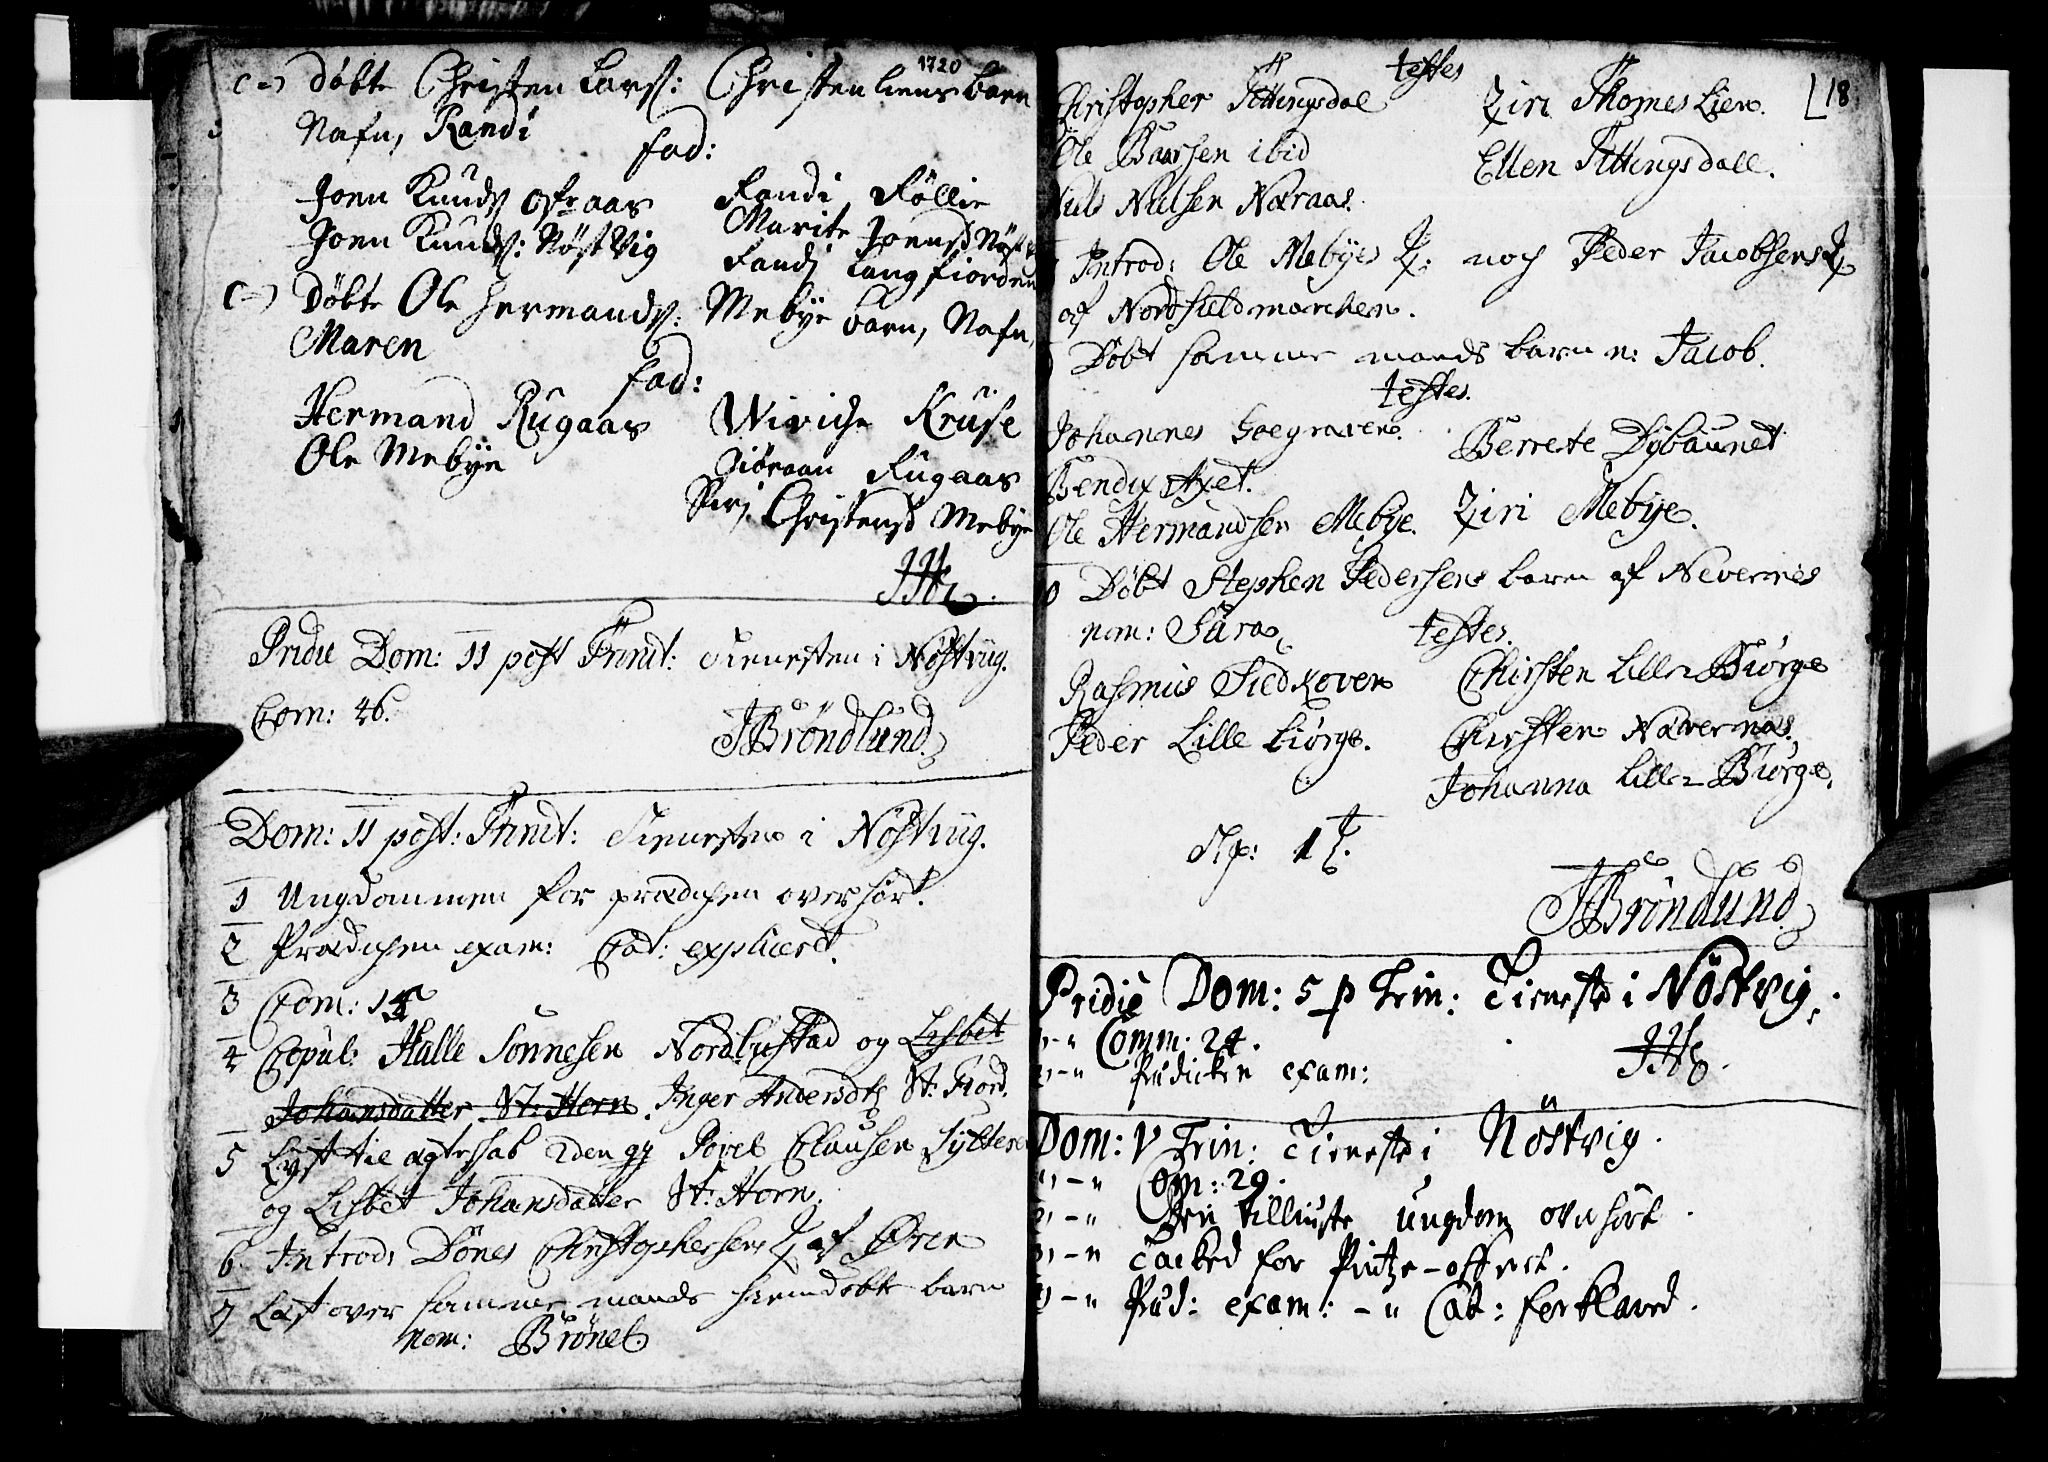 1720
Döbte Christen Lars: Christen liens barn
Nafn, Randi
fad:
Joen Knuds Osteraas Randi Föllie
Joen Knuds: Nöstvig Marite Joensd Nöst
Randj Langfiorden
Döbte Ole Hermands: Mebÿe barn, Nafn,
Maren
fad:
Hermand Rugaas Wiviche Kruse
Ole Mebÿe Siöraan Rugaas
Sirj. Christensd Mebÿe
Pridie Dom: 11 post Trinit: Tienesten i Nöstvug.
Com: 46.
JBröndlund
Dom: 11 post: Trinit: Tienesten i Nöstvug.
1 Ungdommen for prædichen overhört.
2 Prædichen exam: Cat: explicert.
3 Com: 14
4 Copul: Halle Sönnesen Nordlystad og Lisbet
Johansdatter St: Horn. Inger Andersdtr St: Fiord.
5 Lyst til egteskab 2den g Povel Clausen Sylten
og Lisbet Johansdatter St: Horn.
6 Introd: Dönes Christophersens af Ören
7 Læst over samme mands hiemdöbte barn
nom: Brönel
18
testes
Christopher Tittingsdal Ziri Thomes Lien.
Ole Baarsen ibid Ellen Tittingsdall.
Niels Nielsen Næraas.
Introd: Ole Mebÿes noch Peder Jacobsens
af Nordfieldmarchen.
Döbt samme mands barn n: Jacob.
testes.
Johannes Hoegraven. Berrete Dÿbaunet
Bendix Axet.
Ole Hermandsen Mebye. Ziri Mebÿe.
Döbt Stephen Pedersens barn af Nevernes
nom: Sara testes.
Rasmus Siedkoven Christen Lille Biörge
Peder Lille biörge. Chirsten Nævernas,
Johanna Lille Biörge.
1
JBröndlund
Pridie Dom: 5 p Trin: Tieneste i Nöstvig.
Comm: 24.
Prædicken exam:
Dom: V Trin: Tieneste i Nöstvig.
Com: 29.
ungdom overhört.
Tacked for Pintze-offret.
Præd: exam: - Cat: forklared.